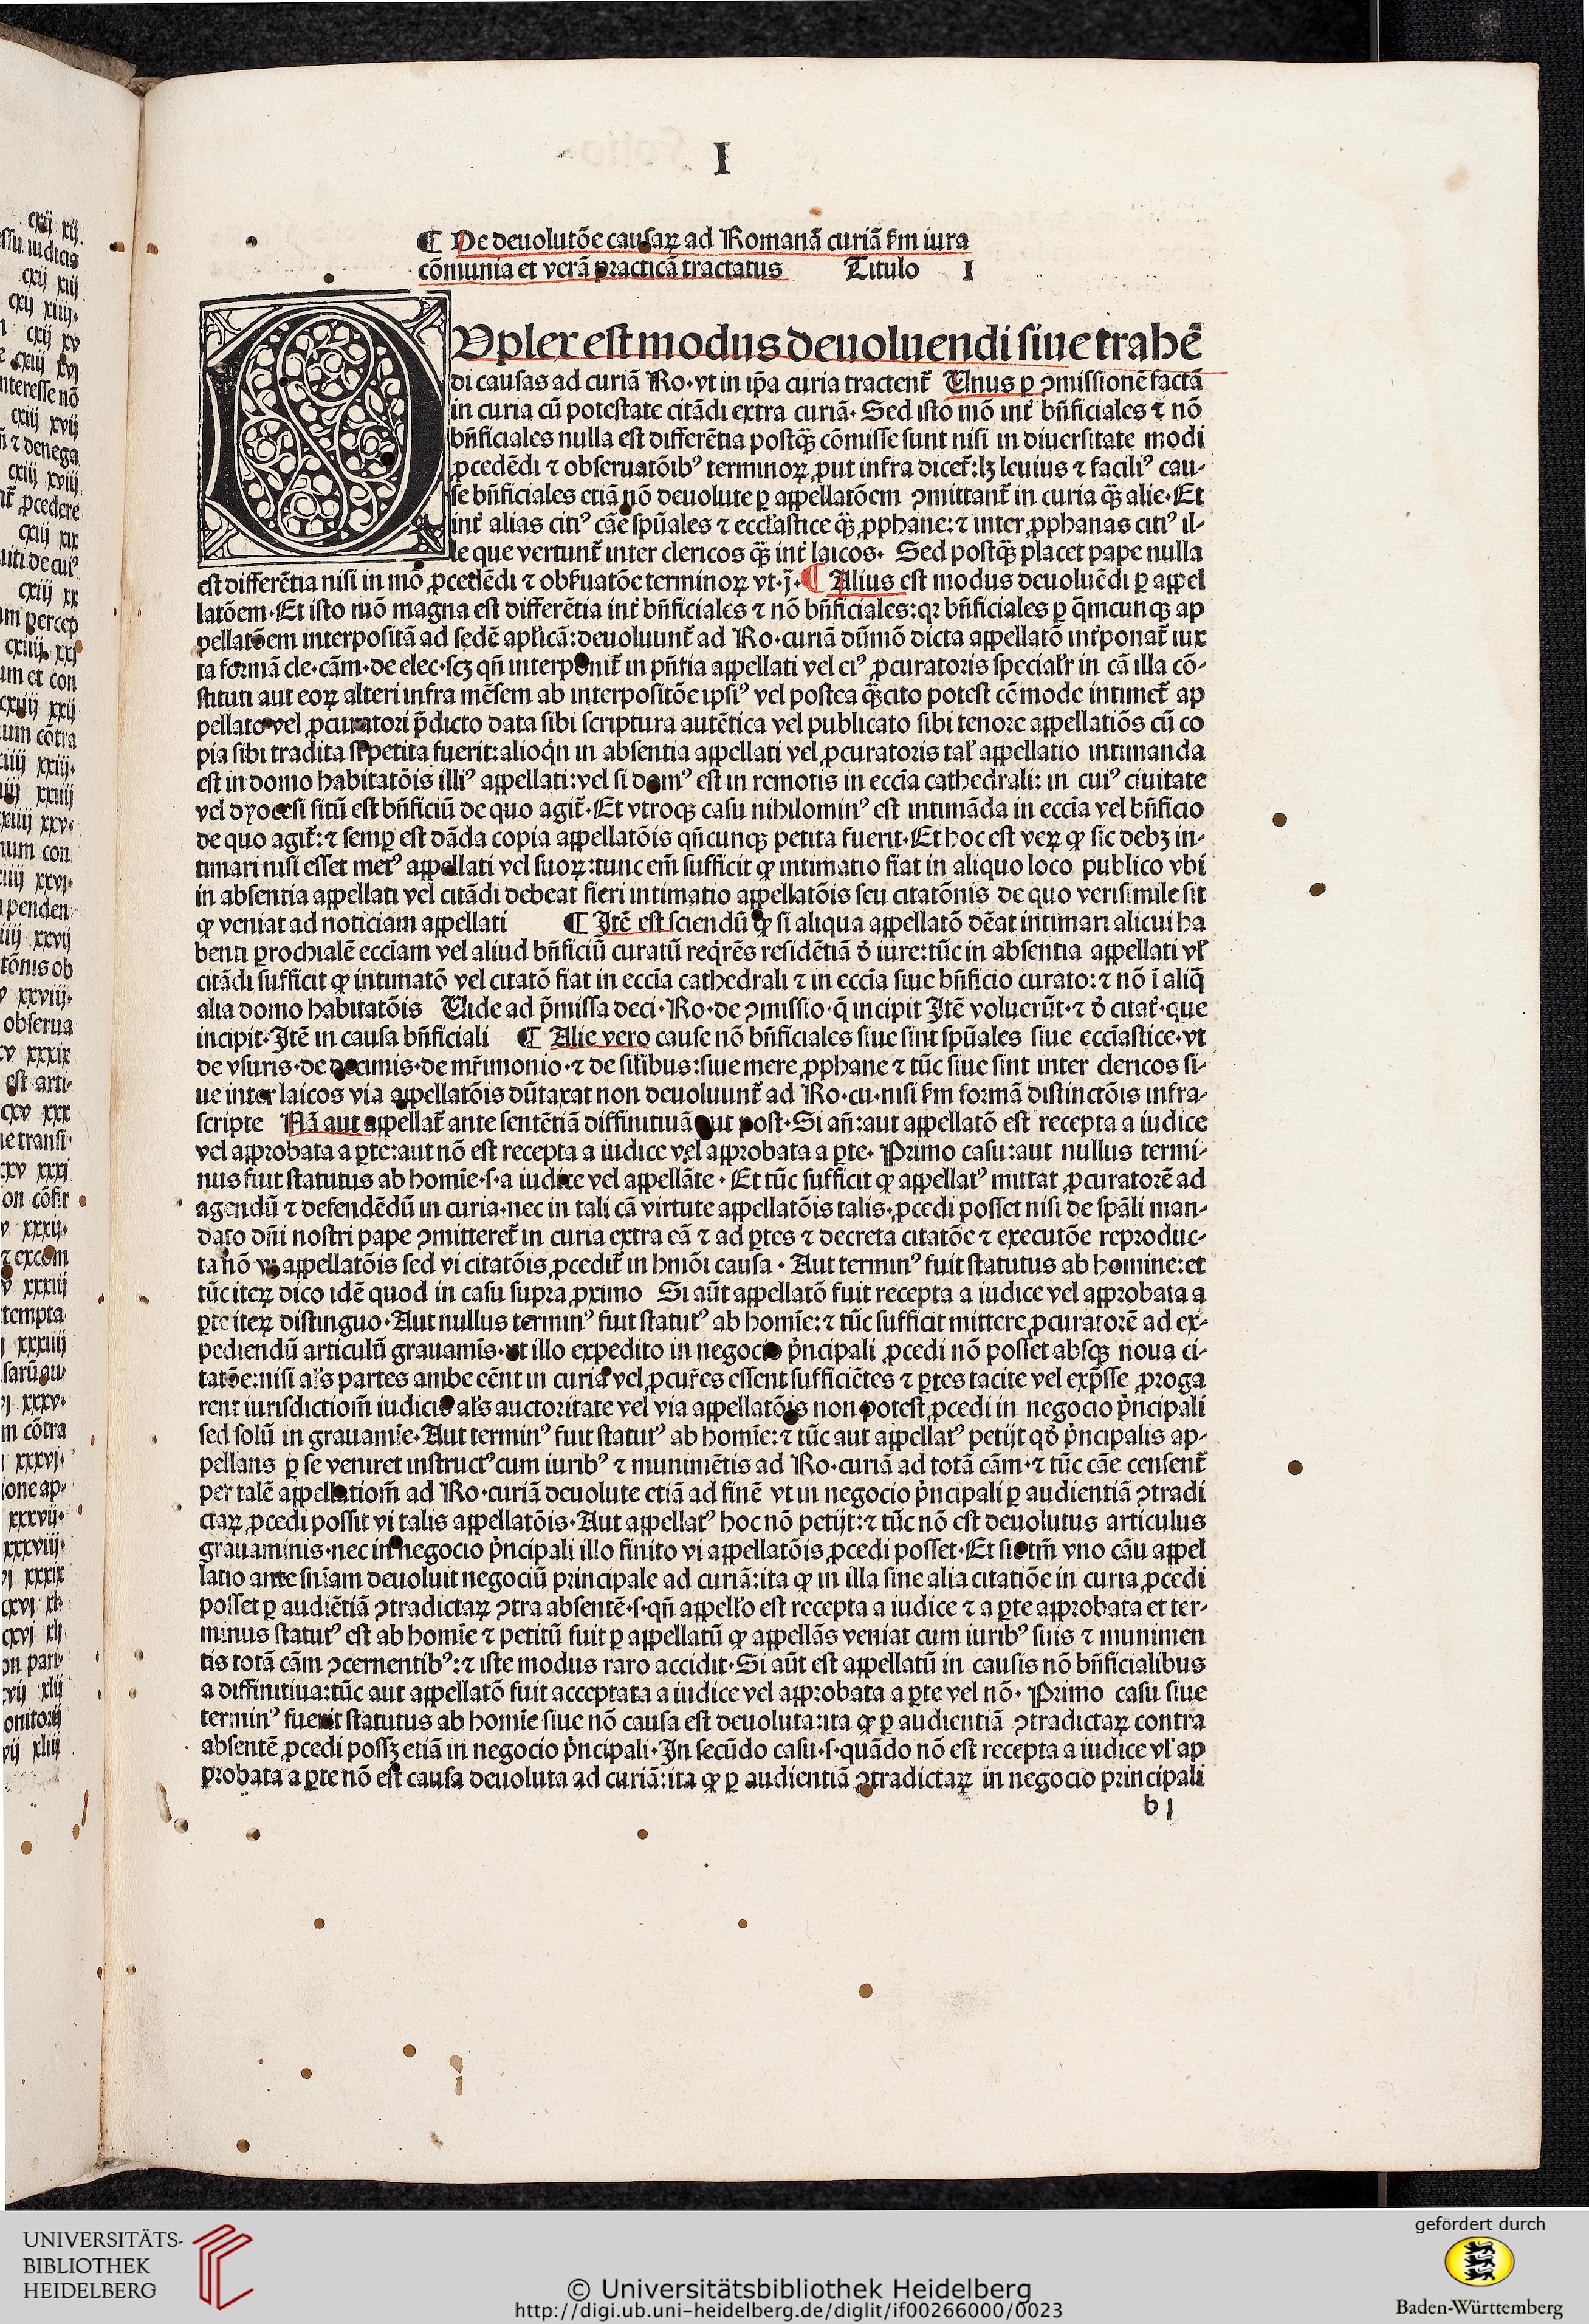 I
¶ De deuolutõe causaꝝ ad Romanã curiã ẜm iura
cõmunia et verã practicã tractatus Titulo I
DUplex est modus deuoluendi siue trahẽ
di causas ad curiã Ro·vt in ip̃a curia tractent̃ Unus ꝑ ꝯmissionẽ factã
in curia cũ potestate citãdi extra curiã· Sed isto mõ int̃ bñficiales ⁊ nõ
bñficiales nulla est differẽtia postq̃ꝫ cõmisse sunt nisi in diuersitate modi
ꝓcedẽdi ⁊ obseruatõibꝰ terminoꝝ ꝓut infra dicet̃:lꝫ leuius ⁊ faciliꝰ cau-
se bñficiales etiã nõ deuolute ꝑ appellatõem ꝯmittant̃ in curia q̃ꝫ alie·Et
int̃ alias citiꝰ cãe spũales ⁊ eccl'astice q̃ꝫ ꝓphane:⁊ inter ꝓphanas citiꝰ il-
le que vertunt̃ inter clericos q̃ꝫ int̃ laicos· Sed postq̃ꝫ placet pape nulla
est differẽtia nisi in mõ ꝓcedẽdi ⁊ obẜuatõe terminoꝝ vt·j̃·¶ Alius est modus deuoluẽdi ꝑ appel
latõem·Et isto mõ magna est differẽtia int̃ bñficiales ⁊ nõ bñficiales:qꝛ bñficiales ꝑ q̃mcunqꝫ ap
pellatõem interpositã ad sedẽ apl'icã:deuoluunt̃ ad Ro·curiã dũmõ dicta appellatõ int̃ponat̃ iux
ta formã cle·cãm·de elec·scꝫ qñ interponit̃ in pñtia appellati vel eiꝰ ꝓcuratoris special'r in cã illa cõ-
stituti aut eoꝝ alteri infra mẽsem ab interpositõe ipsiꝰ vel postea q̃ꝫcito potest cõmode intimet̃ ap
pellato vel ꝓcuratori p̃dicto data sibi scriptura autẽtica vel publicato sibi tenore appellatiõs cũ co
pia sibi tradita si petita fuerit:alioq̃n in absentia appellati vel ꝓcuratoris tal' appellatio intimanda
est in domo habitatõis illiꝰ appellati:vel si domꝰ est in remotis in eccĩa cathedrali: in cuiꝰ ciuitate
vel dyocesi sitũ est bñficiũ de quo agit̃·Et vtroqꝫ casu nihilominꝰ est intimãda in eccĩa vel bñficio
de quo agit̃:⁊ semꝑ est dãda copia appellatõis qñcunqꝫ petita fuerit·Et hoc est veꝝ ꝙ sic debꝫ in-
timari nisi esset metꝰ appellati vel suoꝝ:tunc em̃ sufficit ꝙ intimatio fiat in aliquo loco publico vbi
in absentia appellati vel citãdi debeat fieri intimatio appellatõis seu citatõnis de quo verisimile sit
ꝙ veniat ad noticiam appellati ¶ Itẽ est sciendũ ꝙ si aliqua appellatõ dẽat intimari alicui ha
benti ꝑrochialẽ eccĩam vel aliud bñficiũ curatũ req̃rẽs residẽtiã ð iure:tũc in absentia appellati vl'
citãdi sufficit ꝙ intimatõ vel citatõ fiat in eccĩa cathedrali ⁊ in eccĩa siue bñficio curato:⁊ nõ ĩ aliq̃
alia domo habitatõis Uide ad p̃missa deci·Ro·de ꝯmissio·q̃ incipit Itẽ voluerũt·⁊ ð citat̃·que
incipit·Itẽ in causa bñficiali ¶ Alie vero cause nõ bñficiales siue sint spũales siue eccĩastice·vt
de vsuris·de decimis·de mr̃imonio·⁊ de sil'ibus:siue mere ꝓphane ⁊ tũc siue sint inter clericos si-
ue inter laicos via appellatõis dũtaxat non deuoluunt̃ ad Ro·cu·nisi ẜm formã distinctõis infra-
scripte Nã aut appellat̃ ante sentẽtiã diffinitiuã aut post·Si añ:aut appellatõ est recepta a iudice
vel approbata a ꝑte:aut nõ est recepta a iudice vel approbata a ꝑte· Primo casu:aut nullus termi-
nus fuit statutus ab homĩe·s·a iudice vel appellãte· Et tũc sufficit ꝙ appellatꝰ mittat ꝓcuratorẽ ad
agendũ ⁊ defendẽdũ in curia·nec in tali cã virtute appellatõis talis·ꝓcedi posset nisi de spãli man-
dato dñi nostri pape ꝯmitteret̃ in curia extra eã ⁊ ad ꝑtes ⁊ decreta citatõe ⁊ executõe reproduc-
ta nõ vi appellatõis sed vi citatõis ꝓcedit̃ in hmõi causa· Aut terminꝰ fuit statutus ab homine:et
tũc iteꝝ dico idẽ quod in casu supra ꝓximo Si aũt appellatõ fuit recepta a iudice vel approbata a
ꝑte iteꝝ distinguo·Aut nullus terminꝰ fuit statutꝰ ab homĩe:⁊ tũc sufficit mittere ꝓcuratorẽ ad ex-
pediendũ articulũ grauamĩs·et illo expedito in negocio p̃ncipali ꝓcedi nõ posset absqꝫ noua ci-
tatõe:nisi al's partes ambe eẽnt in curia vel ꝓcur̃es essent sufficiẽtes ⁊ ꝑtes tacite vel exp̃sse ꝓroga
rent iurisdictiom̃ iudicis al's auctoritate vel via appellatõis non potest ꝓcedi in negocio p̃ncipali
sed solũ in grauamĩe·Aut terminꝰ fuit statutꝰ ab homĩe:⁊ tũc aut appellatꝰ petijt qð p̃ncipalis ap-
pellans ꝑ se veniret instructꝰ cum iuribꝰ ⁊ munimẽtis ad Ro·curiã ad totã cãm·⁊ tũc cãe censent̃
per talẽ appellatiom̃ ad Ro·curiã deuolute etiã ad finẽ vt in negocio p̃ncipali ꝑ audientiã ꝯtradi
ctaꝝ ꝓcedi possit vi talis appellatõis·Aut appellatꝰ hoc nõ petijt:⁊ tũc nõ est deuolutus articulus
grauaminis·nec in negocio p̃ncipali illo finito vi appellatõis ꝓcedi posset·Et sic tm̃ vno cãu appel
latio ante sñiam deuoluit negociũ principale ad curiã:ita ꝙ in illa sine alia citatiõe in curia ꝓcedi
posset ꝑ audiẽtiã ꝯtradictaꝝ ꝯtra absentẽ·s·qñ appell'o est recepta a iudice ⁊ a ꝑte approbata et ter-
minus statutꝰ est ab homĩe ⁊ petitũ fuit ꝑ appellatũ ꝙ appellãs veniat cum iuribꝰ suis ⁊ munimen
tis totã cãm ꝯcernentibꝰ:⁊ iste modus raro accidit·Si aũt est appellatũ in causis nõ bñficialibus
a diffinitiua:tũc aut appellatõ fuit acceptata a iudice vel approbata a ꝑte vel nõ· Primo casu siue
terminꝰ fuerit statutus ab homĩe siue nõ causa est deuoluta:ita ꝙ ꝑ audientiã ꝯtradictaꝝ contra
absentẽ ꝓcedi possꝫ etiã in negocio p̃ncipali·In secũdo casu·s·quãdo nõ est recepta a iudice vl' ap
probata a ꝑte nõ est causa deuoluta ad curiã:ita ꝙ ꝑ audientiã ꝯtradictaꝝ in negocio principali
b j
UNIVERSITÄTS-
BIBLIOTHEK
HEIDELBERG
© Universitätsbibliothek Heidelberg
http://digi.ub.uni-heidelberg.de/diglit/if00266000/0023
gefördert durch
Baden-Württemberg